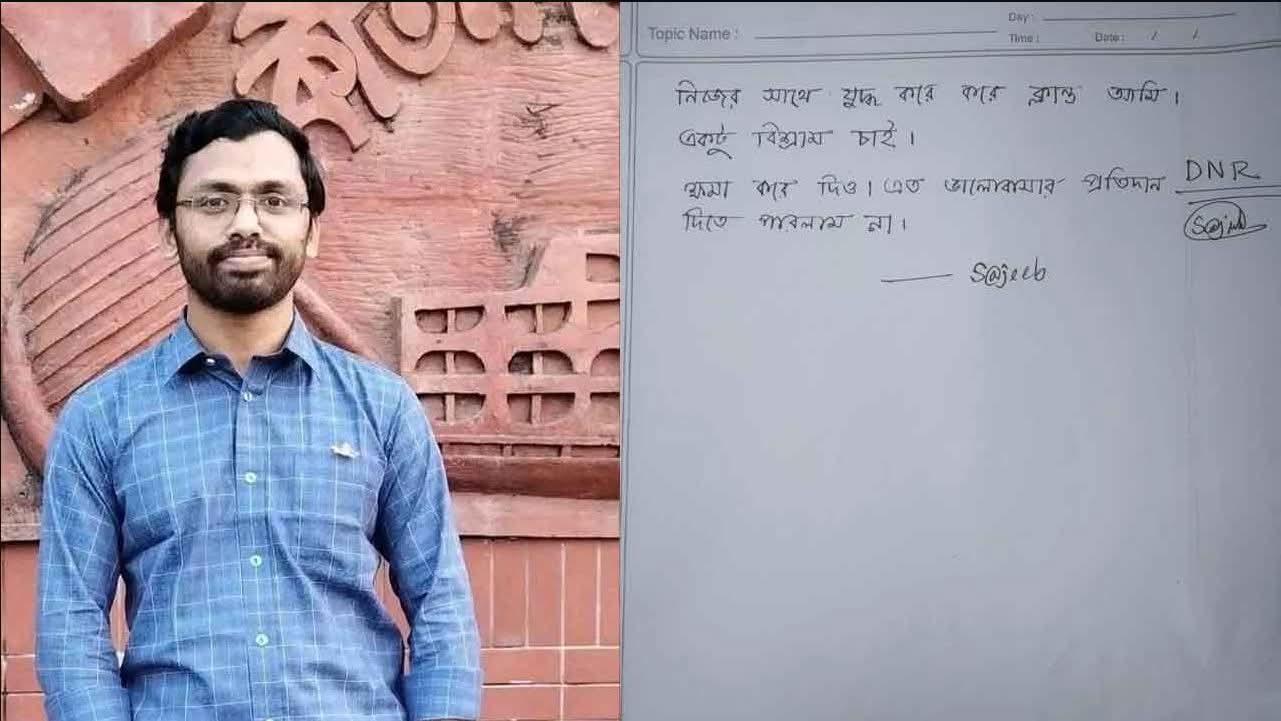 Topic Name :
Day :
Time :
Date : / /
নিজের সাথে যুদ্ধ করে করে ক্লান্ত আমি।
একটু বিশ্রাম চাই।
ক্ষমা করে দিও। এত ভালোবাসার প্রতিদান
দিতে পারলাম না।
S@jeeb
DNR